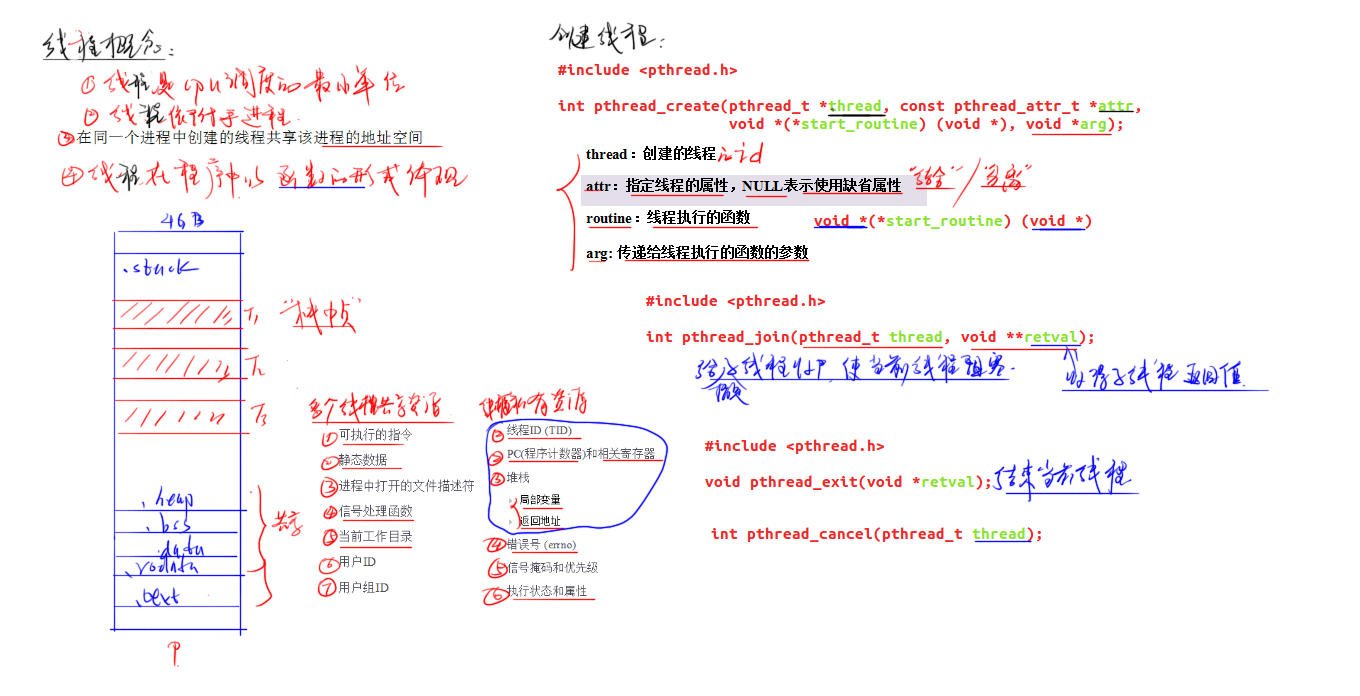 线程概念:
① 线程是cpu调度的最小单位
② 线程依附于进程.
③ 在同一个进程中创建的线程共享该进程的地址空间
④ 线程在程序中以 函数的形式体现
4GB
.stack
T1 "栈帧"
T2
T3
.heap
.bss
.data
.rodata
.text
共享
P
多个线程共享资源
① 可执行的指令
② 静态数据
③ 进程中打开的文件描述符
④ 信号处理函数
⑤ 当前工作目录
⑥ 用户ID
⑦ 用户组ID
私有资源
① 线程ID (TID)
② PC(程序计数器)和相关寄存器
③ 堆栈
局部变量
返回地址
④ 错误号 (errno)
⑤ 信号掩码和优先级
⑥ 执行状态和属性
创建线程:
#include <pthread.h>
int pthread_create(pthread_t *thread, const pthread_attr_t *attr,
void *(*start_routine) (void *), void *arg);
thread：创建的线程
attr：指定线程的属性，NULL表示使用缺省属性
routine：线程执行的函数 void *(*start_routine) (void *)
arg: 传递给线程执行的函数的参数
#include <pthread.h>
int pthread_join(pthread_t thread, void **retval);
给子线程收尸, 使当前线程阻塞.
获得子线程返回值.
#include <pthread.h>
void pthread_exit(void *retval); 结束当前线程
int pthread_cancel(pthread_t thread);